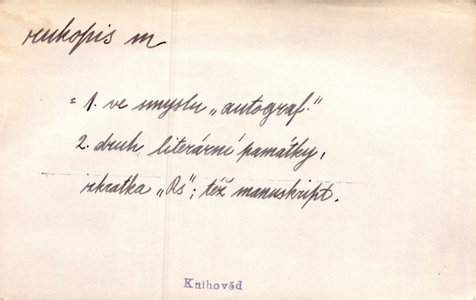 rukopis m
= 1. ve smyslu „autograf."
2. druh literární památky,
zkratka „Rs"; též manuskript.
Knihověd